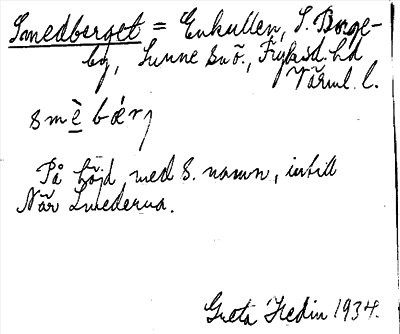 Smedberget = Enkullen, S. Borge-
by, Sunne snö., Fryksd. hd
Värml. l.
smὲ bærj
På höjd med s. namn, intill
När Smederna.
Greta Hedin 1934.